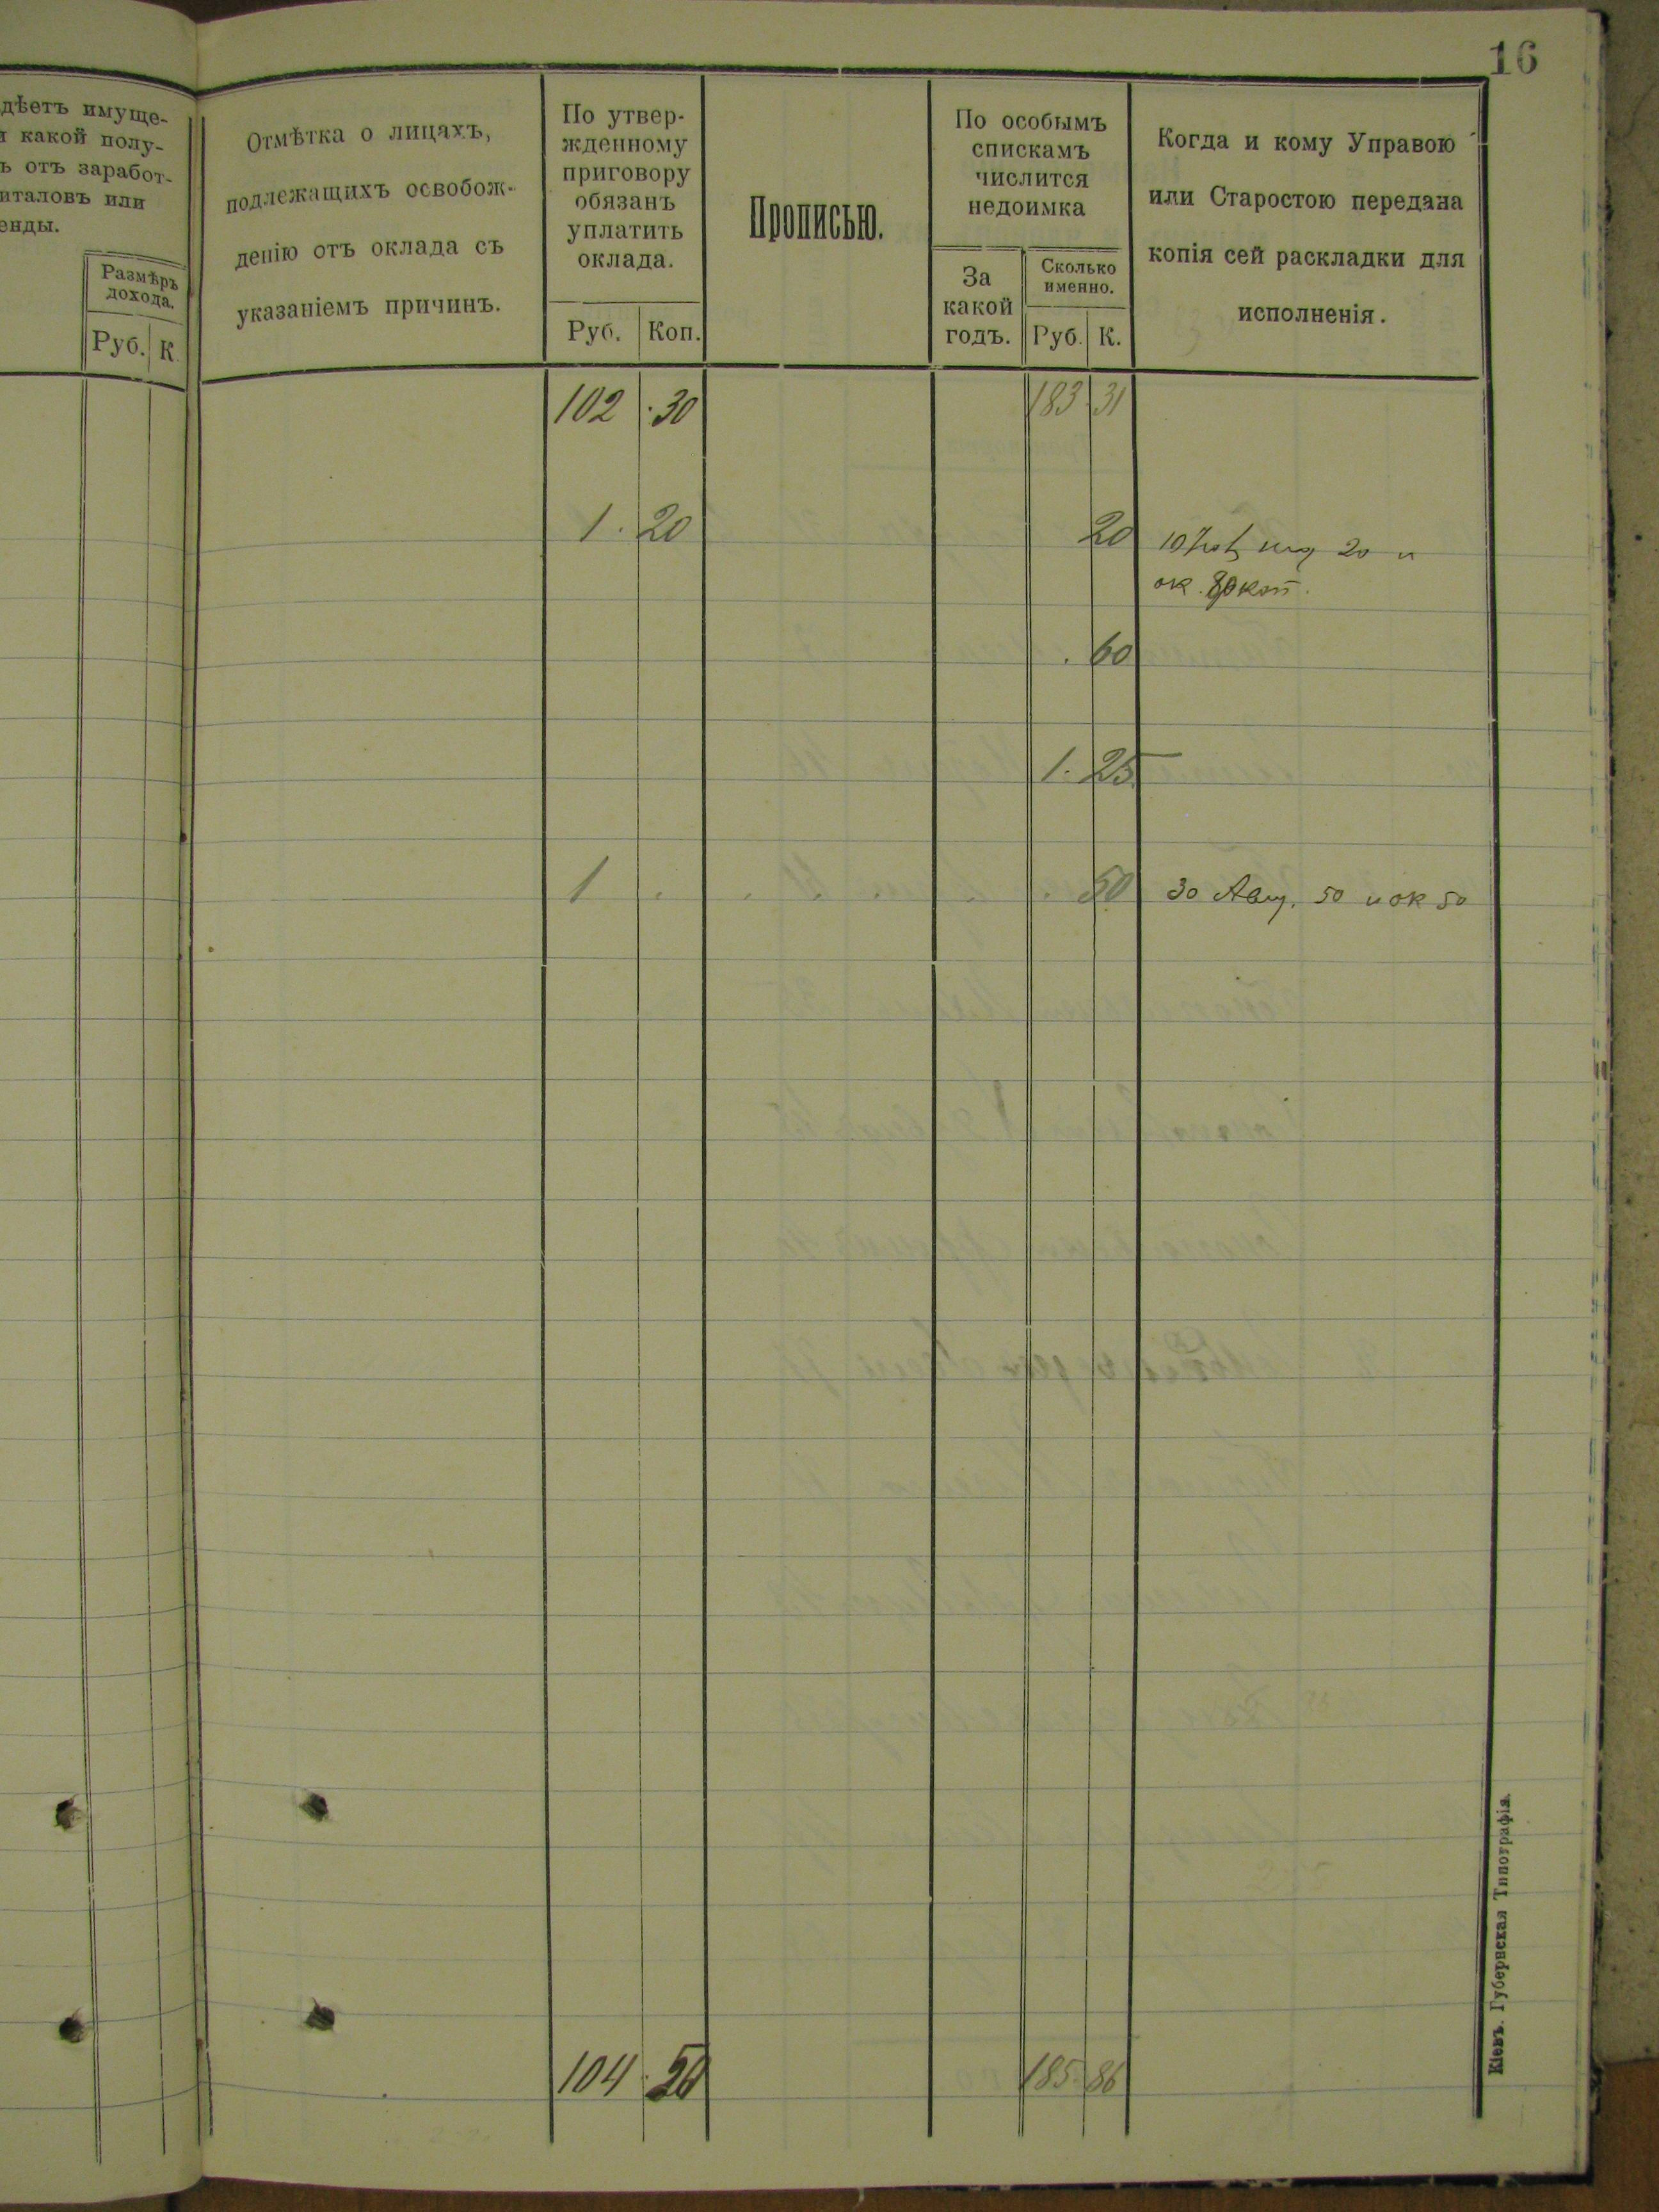 16
дѣетъ имуще-
какой полу-
ъ отъ заработ-
италовъ или
енды.
Размѣръ
дохода.
Руб. К.
Отмѣтка о лицахъ,
подлежащихъ освобож-
денію отъ оклада съ
указаніемъ причинъ.
По утвер-
жденному
приговору
обязанъ
уплатить
оклада.
Руб. Коп.
Прописью.
По особымъ
спискамъ
числится
недоимка
За
какой
годъ.
Сколько
именно.
Руб. К.
Когда и кому Управою
или Старостою передана
копія сей раскладки для
исполненія.
102 · 30 183 · 31
1 · 20 20 20 и
ок. коп.
· 60
1 · 25
1 · · · · · · · 50 30 Авг. 50 и ок 50
104 · 50 185 · 86
Кіевъ. Губернская Типографія.